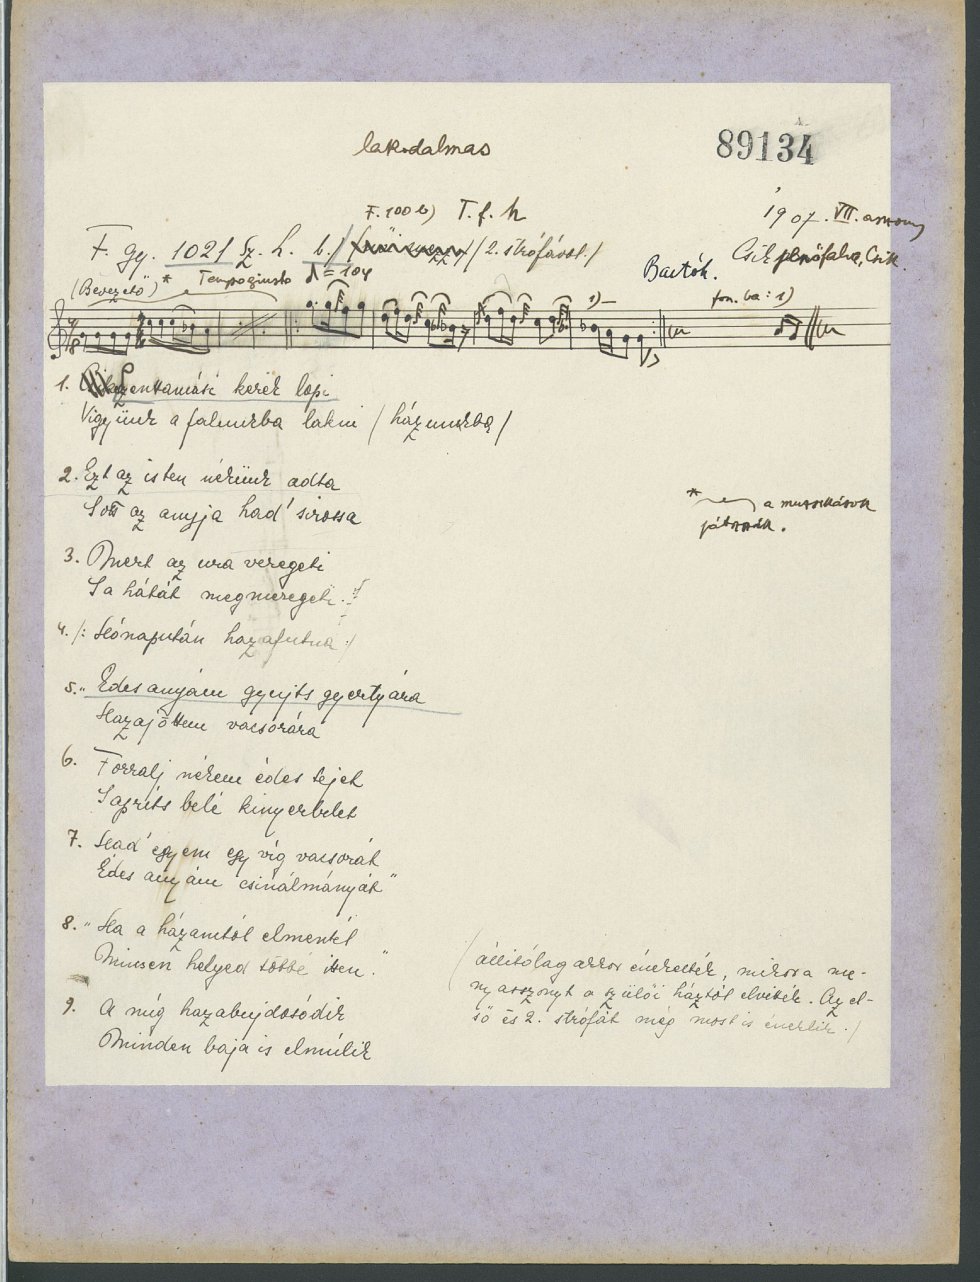 lakodalmas
89134
F. 100 b) T. f. h
1907. VII. asszony
F. gy. 1021 Sz. h. b. / 2. strófával. /
Csik Jenőfalva, Csik
Bartók.
(Bevezető) * Tempo giusto ♪ = 104
1) fon. ba: 1)
1. Szenttamási kerek lapi
Vigyünk a falunkba lakni / házunkba /
2. Ezt az isten nékünk adta
S ott az anyja had' sirassa
3. Mert az ura veregeti
S a hátát megmeregeti
4. /: Hónapután hazafutna :/
* a muzsikások
játszák.
5. „Édes anyám gyujts gyertyára
Hazajöttem vacsorára
6. Forralj nékem édes tejet
S apríts belé kinyerbelet
7. Had' egyem egy víg vacsorát
Édes anyám csinálmányát"
8. „Ha a házamtól elmentél
Mincsen helyed többé itten."
9. A míg hazabujdosódik
Minden baja is elmúlik
/ állítólag akkor énekelték, mikor a me-
nyasszonyt a szülői háztól elvitték. Az el-
ső és 2. strófát még most is éneklik. /